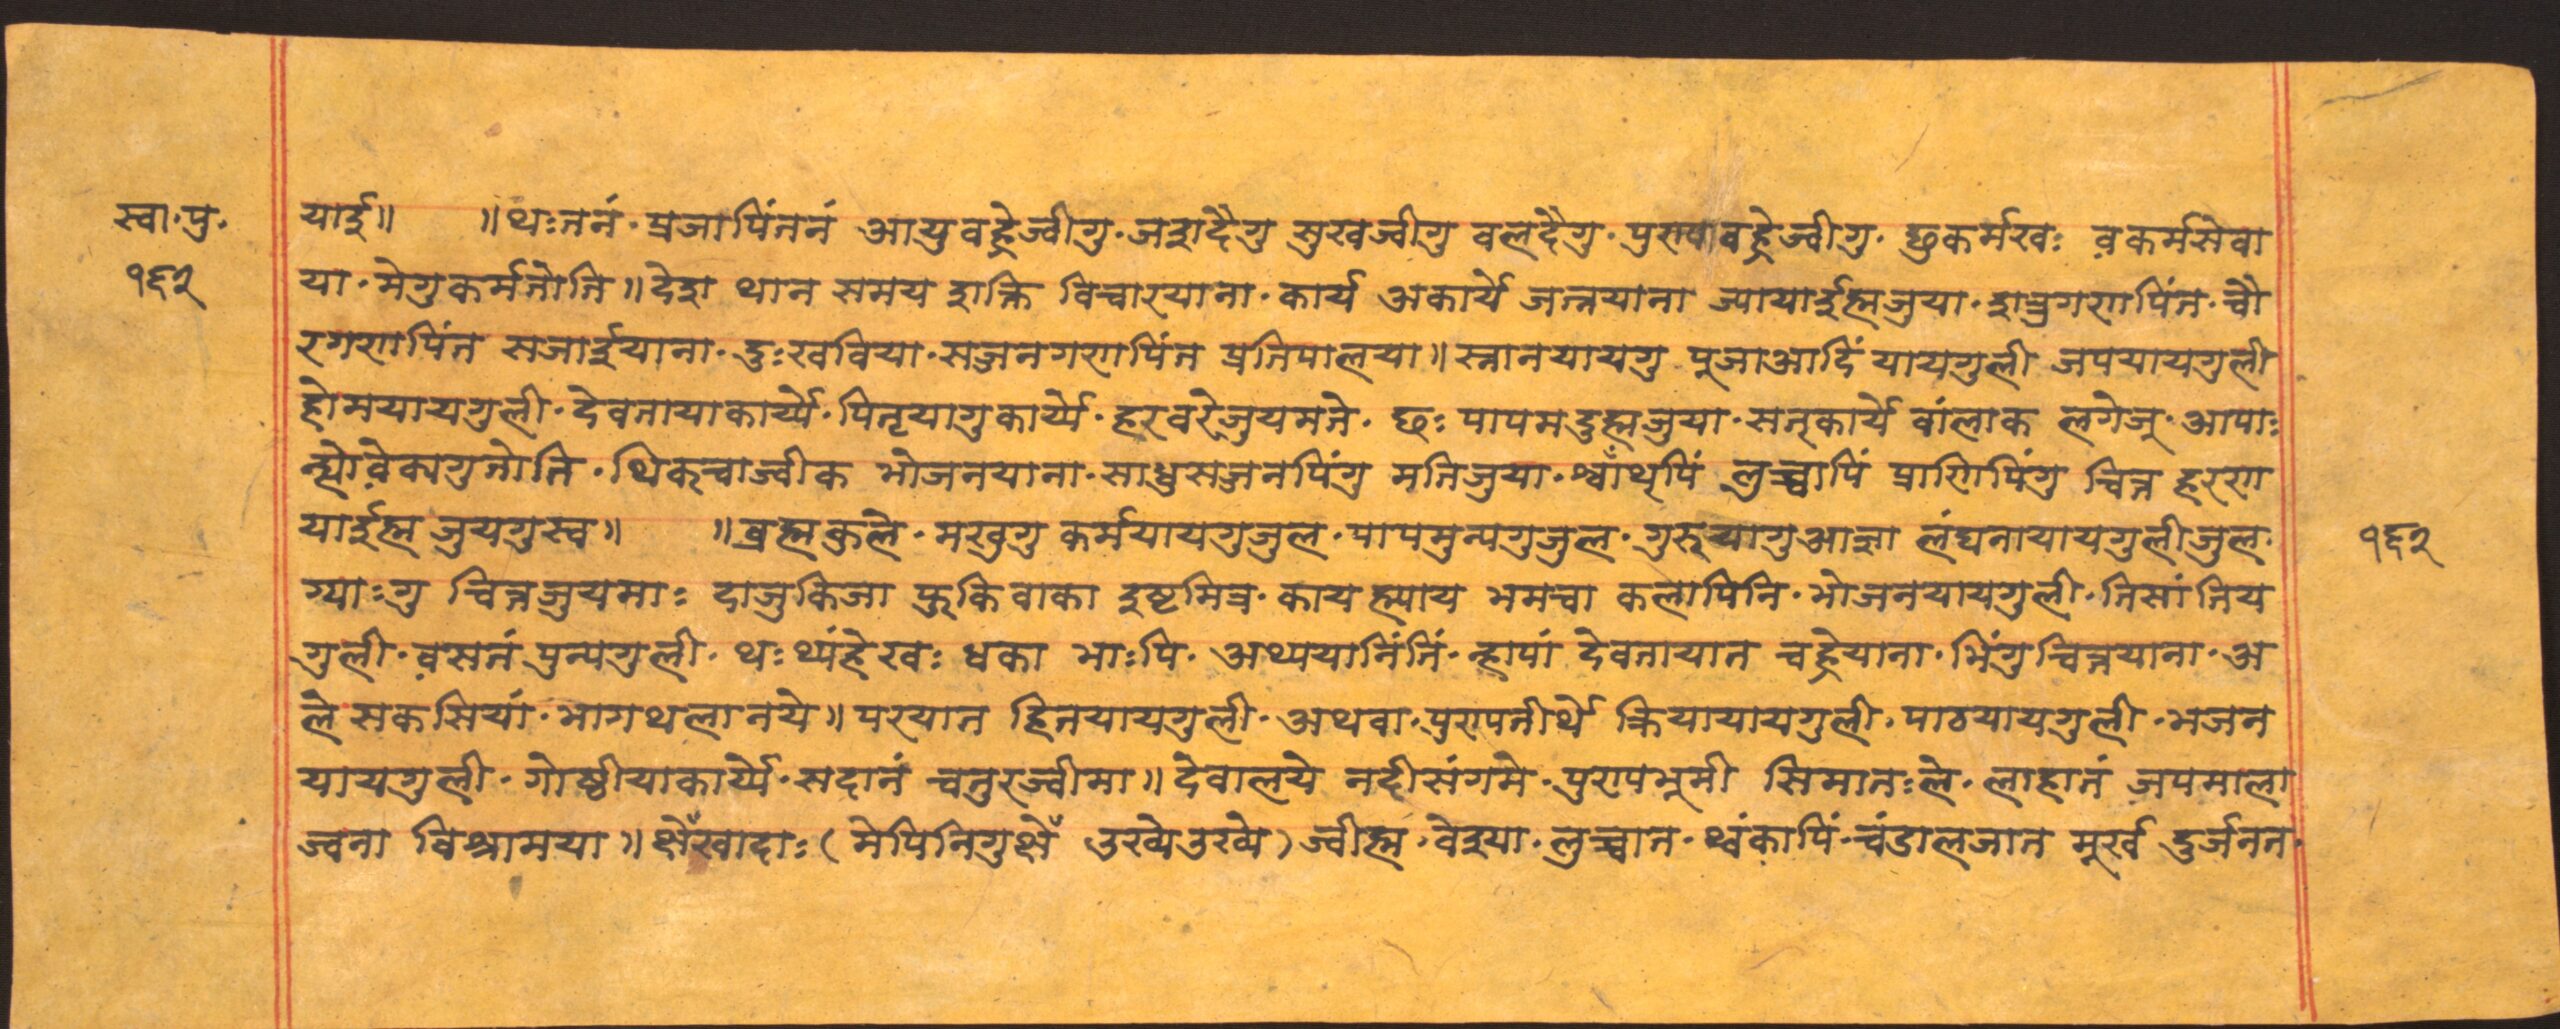 स्वा॰पु॰
१६२
यार्इ॥ ॥थःतनं॰प्रजापिंतनं आयुवह्रेज्वीगु॰जशदैगु सुखज्वीगु वलदैगु॰पुरापवह्रेज्वीगु॰ छुकर्मखः व़कर्मसेवा
या॰मेगुकर्मतोति॥देश थान समय शक्ति विचारयाना॰कार्य अकार्ये जत्नयाना ज्यायार्इह्मजुया॰शत्रुगणपिंत॰चौ
रगणपिंत सजार्इयाना॰दुःखविया॰सज्जनगणपिंत प्रतिपालया॥स्नानयायगु पूजाआदिं यायगुली जपयायगुली
होमयायगुली॰देवतायाकार्य्ये॰पितृयागुकार्य्ये॰हरवरेजुयमते॰ छः पापमदुह्मजुया॰सत्कार्ये वांलाक लगेजू॰आपाः
न्ह्योव़ेक्यगुतोति॰थिकचाज्वीक भोजनयाना॰साधुसज्जनपिंगु मतिजुया॰श्वाँथ्पिं लुच्चापिं प्राणिपिंगु चित्त हरण
यार्इह्म जुयगुस्व॥ ॥ब्रह्मकुले॰मखुगु कर्मयायगुजुल॰पापमुन्यगुजुल॰गुरूयागुआज्ञा लंघनायायगुलीजुल॰
१६२
ग्याःगु चित्तजुयमाः दाजुकिजा फुकिवाका इष्टमित्र॰काय ह्म्याय भमचा कलापिनि॰भोजनयायगुली॰तिसां तिय
गुली॰व़सतं पुन्यगुली॰थःथ्यंहेखः धका भाःपि॰अथ्ययानिंतिं॰न्हापां देवतायात चह्रेयाना॰भिंगुचित्तयाना॰अ
ले सकसियां॰भागथलातये॥परयात हितयायगुली॰अथवा॰पुरापतीर्थे क्रियायायगुली॰पाठयायगुली॰भजन
यायगुली॰गोष्ठीयाकार्य्ये॰सदानं चतुरज्वीमा॥देवालये नदीसंगमे॰पुरापभूमी सिमातःले॰लाहातं जपमाला
ज्वना विश्रामया॥क्षेँखादाः(मेपिनिगुक्षेँ उख्येउख्ये)ज्वीह्म॰वेश्या॰लुच्चात॰थ्वंकापिं॰चंडालजात मूर्ख दुर्जनत॰